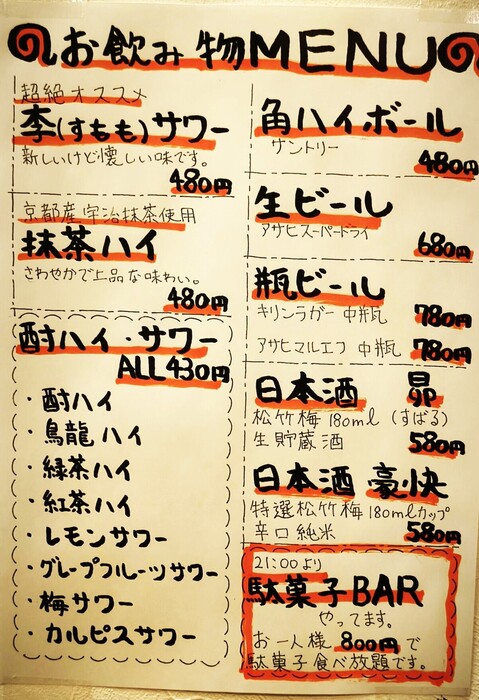 お飲み物MENU
超絶オススメ
李(すもも)サワー
新しいけど懐しい味です。
480円
京都産宇治抹茶使用
抹茶ハイ
さわやかで上品な味わい。
480円
酎ハイ・サワー
ALL430円
・酎ハイ
・烏龍ハイ
・緑茶ハイ
・紅茶ハイ
・レモンサワー
・グレープフルーツサワー
・梅サワー
・カルピスサワー
角ハイボール
サントリー
480円
生ビール
アサヒスーパードライ
680円
瓶ビール
キリンラガー 中瓶 780円
アサヒマルエフ 中瓶 780円
日本酒 昴
松竹梅180ml (すばる)
生貯蔵酒 580円
日本酒 豪快
特選松竹梅180mlカップ
辛口純米 580円
21:00より
駄菓子BAR
やってます。
お一人様 800円で
駄菓子食べ放題です。